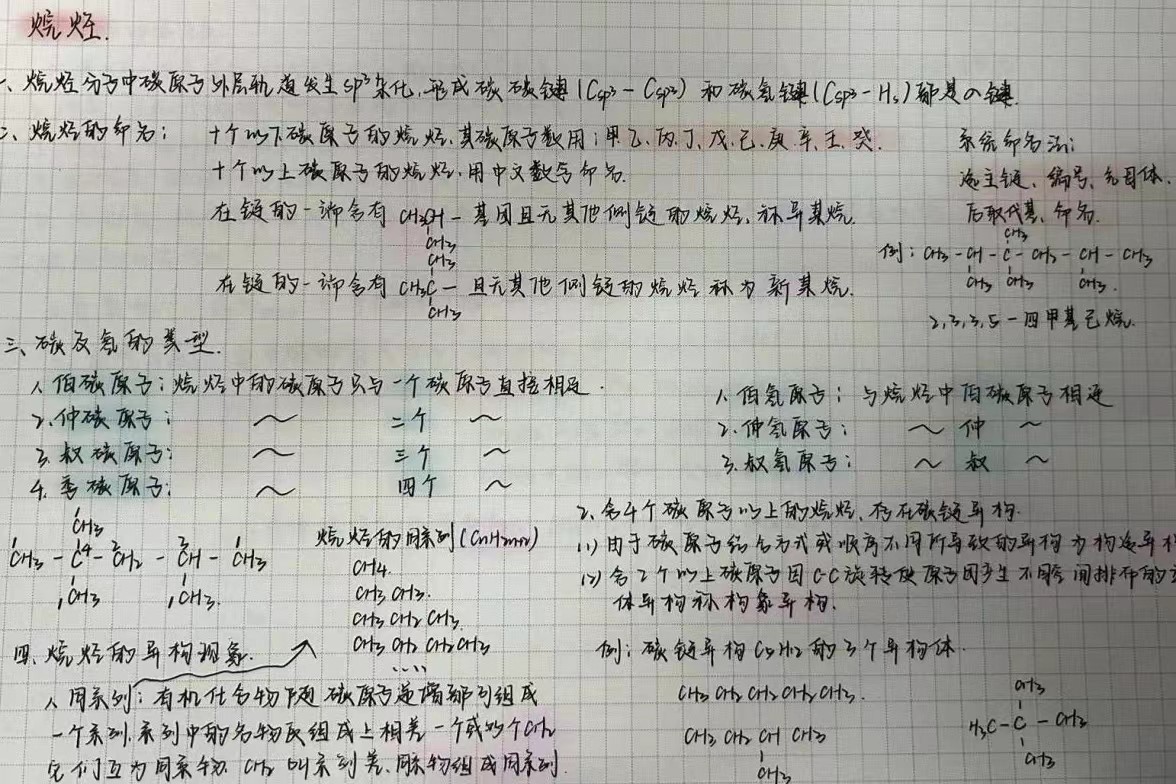 烷烃.
一、烷烃分子中碳原子外层轨道发生sp³杂化,形成碳碳键(Csp³-Csp³)和碳氢键(Csp³-Hs)都是σ键.
二、烷烃的命名: 十个以下碳原子的烷烃,其碳原子数用:甲乙、丙、丁、戊、己、庚、辛、壬、癸.
十个以上碳原子的烷烃,用中文数字命名.
在链的一端含有 CH₃CH- 基团且无其他侧链的烷烃,称异某烷.
CH₃
CH₃
在链的一端含有 CH₃C- 且无其他侧链的烷烃称为新某烷.
CH₃
系统命名法:
选主链、编号、先母体.
后取代基、命名.
CH₃
例: CH₃-CH-C-CH₂-CH-CH₃
CH₃ CH₃ CH₃.
2,3,3,5-四甲基己烷.
三、碳及氢的类型.
1、伯碳原子:烷烃中的碳原子只与一个碳原子直接相连.
2.仲碳原子: ~ 二个 ~
3.叔碳原子: ~ 三个 ~
4.季碳原子: ~ 四个 ~
1、伯氢原子: 与烷烃中伯碳原子相连
2.仲氢原子: ~ 仲 ~
3.叔氢原子: ~ 叔 ~
1CH₃
1CH₃-4C-2CH₂-3CH-1CH₃
1CH₃ 1CH₃.
四、烷烃的异构现象.
1、同系列:有机化合物中随碳原子递增都可组成
一个系列,系列中的各物质组成上相差一个或多个CH₂
它们互为同系物. CH₂叫系列差、同系物组成同系列.
烷烃的同系列(CnH2n+2)
CH₄.
CH₃ CH₃.
CH₃ CH₂ CH₃.
CH₃ CH₂ CH₂CH₃
.....
2、含4个碳原子以上的烷烃,存在碳链异构.
(1)由于碳原子结合方式或顺序不同所导致的异构为构造异构
(2)含2个以上碳原子因C-C旋转使原子团产生不同空间排布的立
体异构称构象异构.
例:碳链异构C₅H₁₂的3个异构体.
CH₃ CH₂ CH₂CH₂CH₃.
CH₃ CH₂ CH CH₃
CH₃
CH₃
H₃C-C-CH₃
CH₃